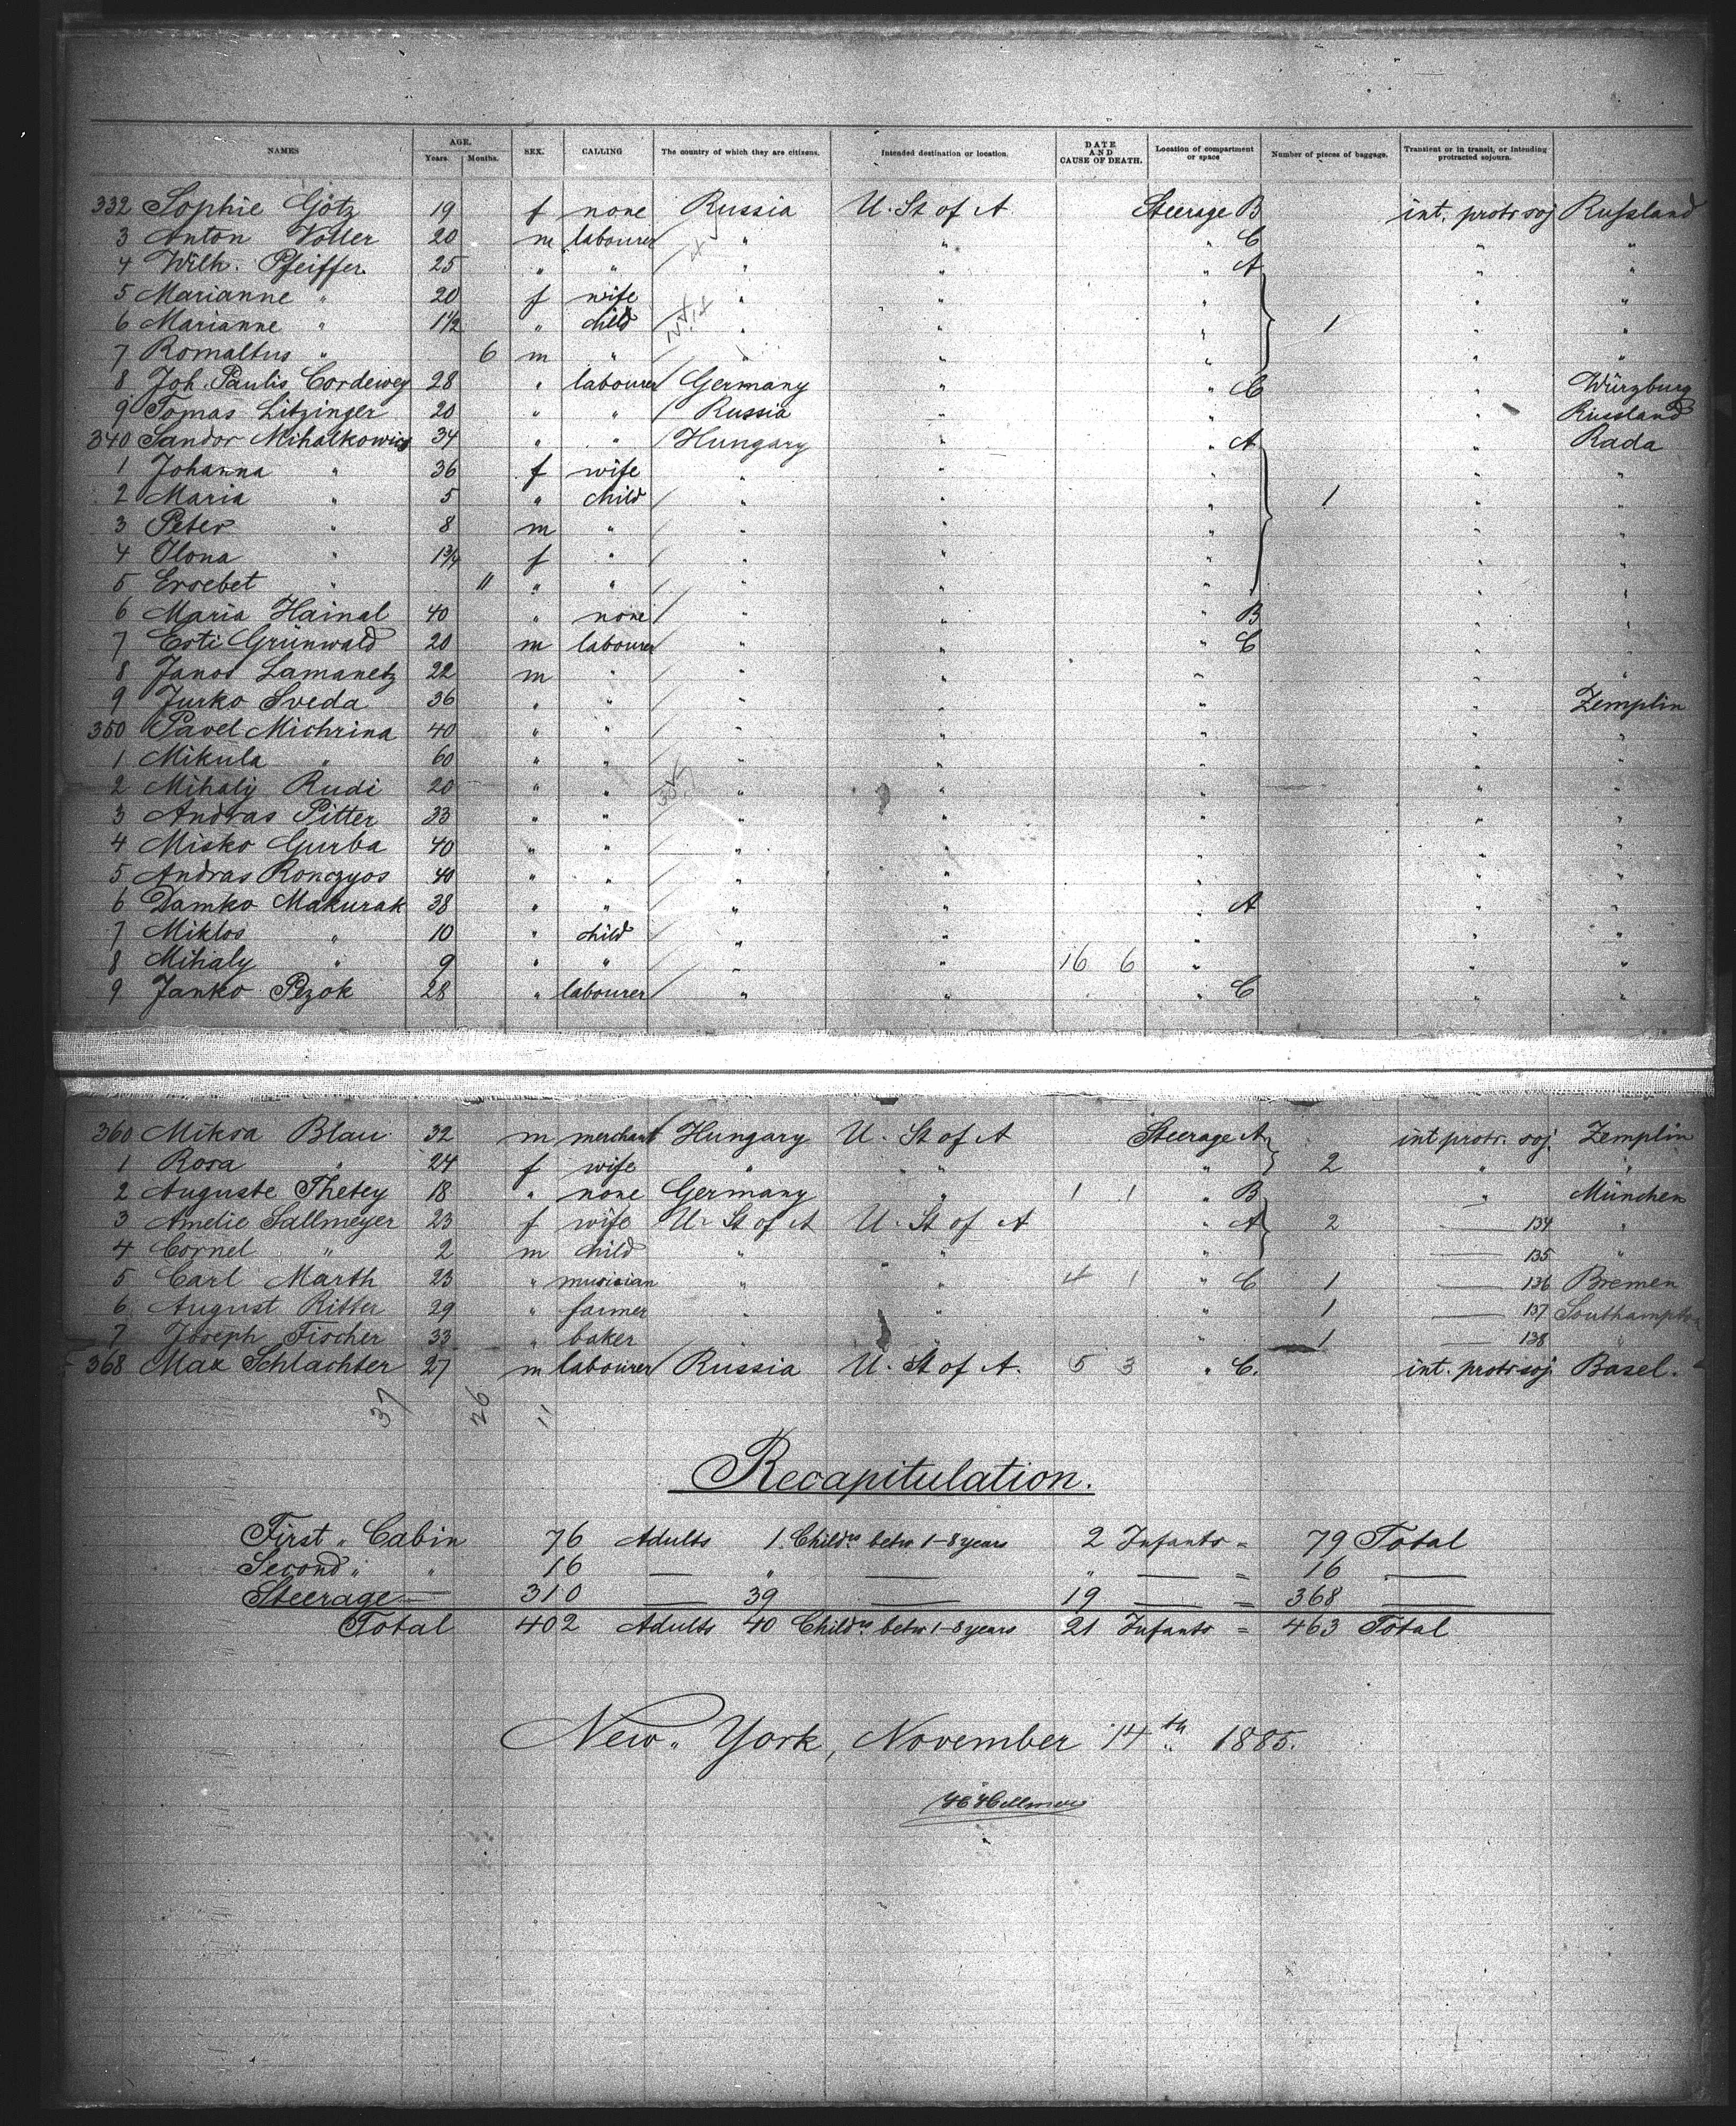 NAMES AGE. Years. Months. SEX. CALLING The country of which they are citizens. Intended destination or location. DATE AND CAUSE OF DEATH. Location of compartment or space Number of pieces of baggage. Transient or in transit, or intending protracted sojourn.
332 Sophie Götz 19 f none Russia U. St of A Steerage B int. protr soj Russland
3 Anton Voller 20 m labourer " " " C " "
4 Wilh. Pfeiffer 25 " " " " " A " "
5 Marianne " 20 f wife " " " " "
6 Marianne " 1½ " child " " " 1 " "
7 Romaltus " 6 m " " " " " "
8 Joh. Paulis Cordewey 28 " labourer Germany " " C " Würzburg
9 Tomas Litzinger 20 " " Russia " " " Russland
340 Sandor Mihalkowics 34 " " Hungary " " A " Rada
1 Johanna " 36 f wife " " " " "
2 Maria " 5 " child " " " 1 " "
3 Peter " 8 m " " " " " "
4 Ilona " 1¾ f " " " " " "
5 Ersebet " 11 " " " " " " "
6 Maria Hainal 40 " none " " " B " "
7 Esti Grünwald 20 m labourer " " " C " "
8 Janos Lamanetz 22 m " " " " " "
9 Jurko Sveda 36 " " " " " " Zemplin
350 Pavel Michrina 40 " " " " " " "
1 Mikula " 60 " " " " " " "
2 Mihaly Rudi 20 " " " " " " "
3 Andras Pitter 33 " " " " " " "
4 Misko Gurba 40 " " " " " " "
5 Andras Ronczyos 40 " " " " " " "
6 Damko Makurak 38 " " " " " A " "
7 Miklos " 10 " child " " " " "
8 Mihaly " 9 " " " " 16 6 " " "
9 Janko Pezok 28 " labourer " " " C " "
360 Miksa Blau 32 m merchant Hungary U. St of A Steerage A int protr. soj. Zemplin
1 Rosa " 24 f wife " " " 2 " "
2 Auguste Thetey 18 " none Germany " 1 1 " B " München
3 Amelie Sallmeyer 23 f wife U. St of A U. St of A " A 2 — 134 "
4 Cornel " 2 m child " " " — 135 "
5 Carl Marth 23 " musician " " 4 1 " C 1 — 136 Bremen
6 August Ritter 29 " farmer " " " 1 — 137 Southampton
7 Joseph Fischer 33 " baker " " " 1 — 138 "
368 Max Schlachter 27 m labourer Russia U. St of A. 5 3 " C. int. protr soj. Basel.
37 26 11
Recapitulation.
First " Cabin 76 Adults 1 Childrn betw 1-8 years 2 Infants = 79 Total
Second " " 16 — " — " — = 16 —
Steerage — 310 — 39 — 19 — = 368 —
Total 402 Adults 40 Childrn betw 1-8 years 21 Infants = 463 Total
New York, November 14th 1885.